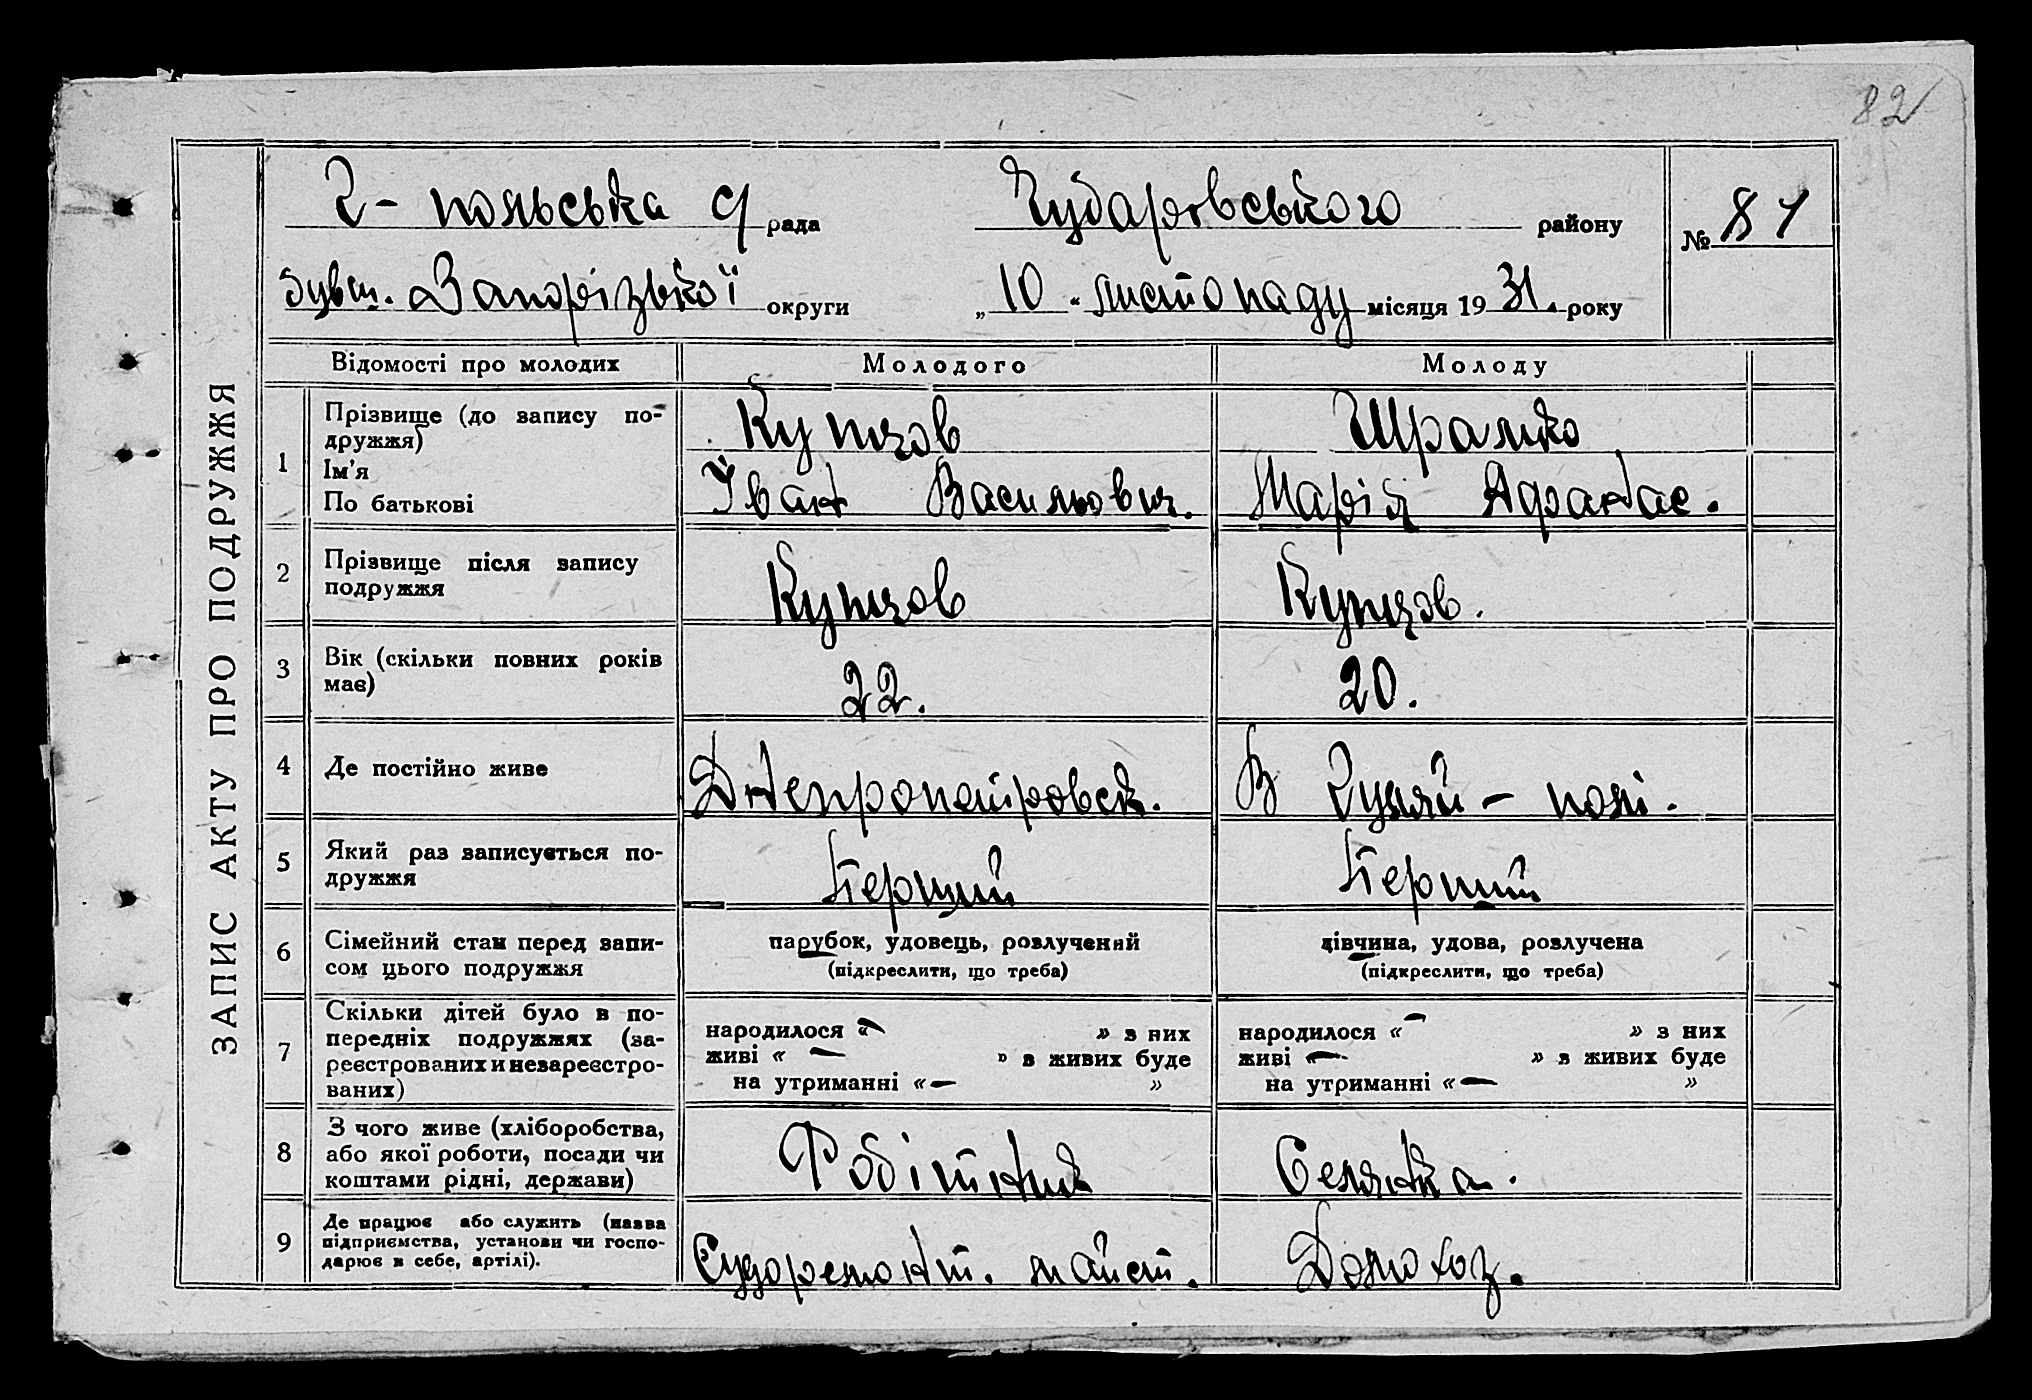 82
Г- польська с/ рада Чубарівського району № 81
бувш. Запорізької округи „ 10 “ листопаду місяця 19 31. року
ЗАПИС АКТУ ПРО ПОДРУЖЖЯ
Відомості про молодих Молодого Молоду
1 Прізвище (до запису подружжя) Купцов
Ім'я Іван Марія
По батькові Васильович. Афанас.
2 Прізвище після запису подружжя Купцов Купцов.
3 Вік (скільки повних років має) 22. 20.
4 Де постійно живе Днепропетровськ. В Гуляй - полі.
5 Який раз записується подружжя Перший Перший
6 Сімейний стан перед записом цього подружжя парубок, удовець, розлучений дівчина, удова, розлучена
(підкреслити, що треба) (підкреслити, що треба)
7 Скільки дітей було в попередніх подружжях (зареєстрованих и незареєстрованих)
народилося «— » з них народилося «— » з них
живі « — » в живих буде живі «— » в живих буде
на утриманні «— » на утриманні «— »
8 З чого живе (хліборобства, або якої роботи, посади чи коштами рідні, держави) Робітник Селянка.
9 Де працює або служить (назва підприємства, установи чи господарює в себе, артілі). Судоремонт. майст. Домохоз.